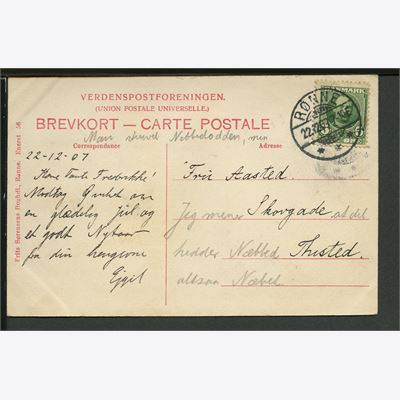 VERDENSPOSTFORENINGEN.
(UNION POSTALE UNIVERSELLE.)
BREVKORT — CARTE POSTALE
Man skrev Nebbeodden, men
Correspondance
Adresse
22-12-07
Kære Tante Frederikke!
Modtag Ønsket om
en glædelig Jul og
et godt Nytaar
fra din hengivne
Egil
Frk Aasted
Jeg mener Skovgade at det
hedder Næbbed Thisted
altsaa Næbel
Frits Sørensens Boghdl., Rønne. Eneret 56
RØNNE
22.12.07
DANMARK